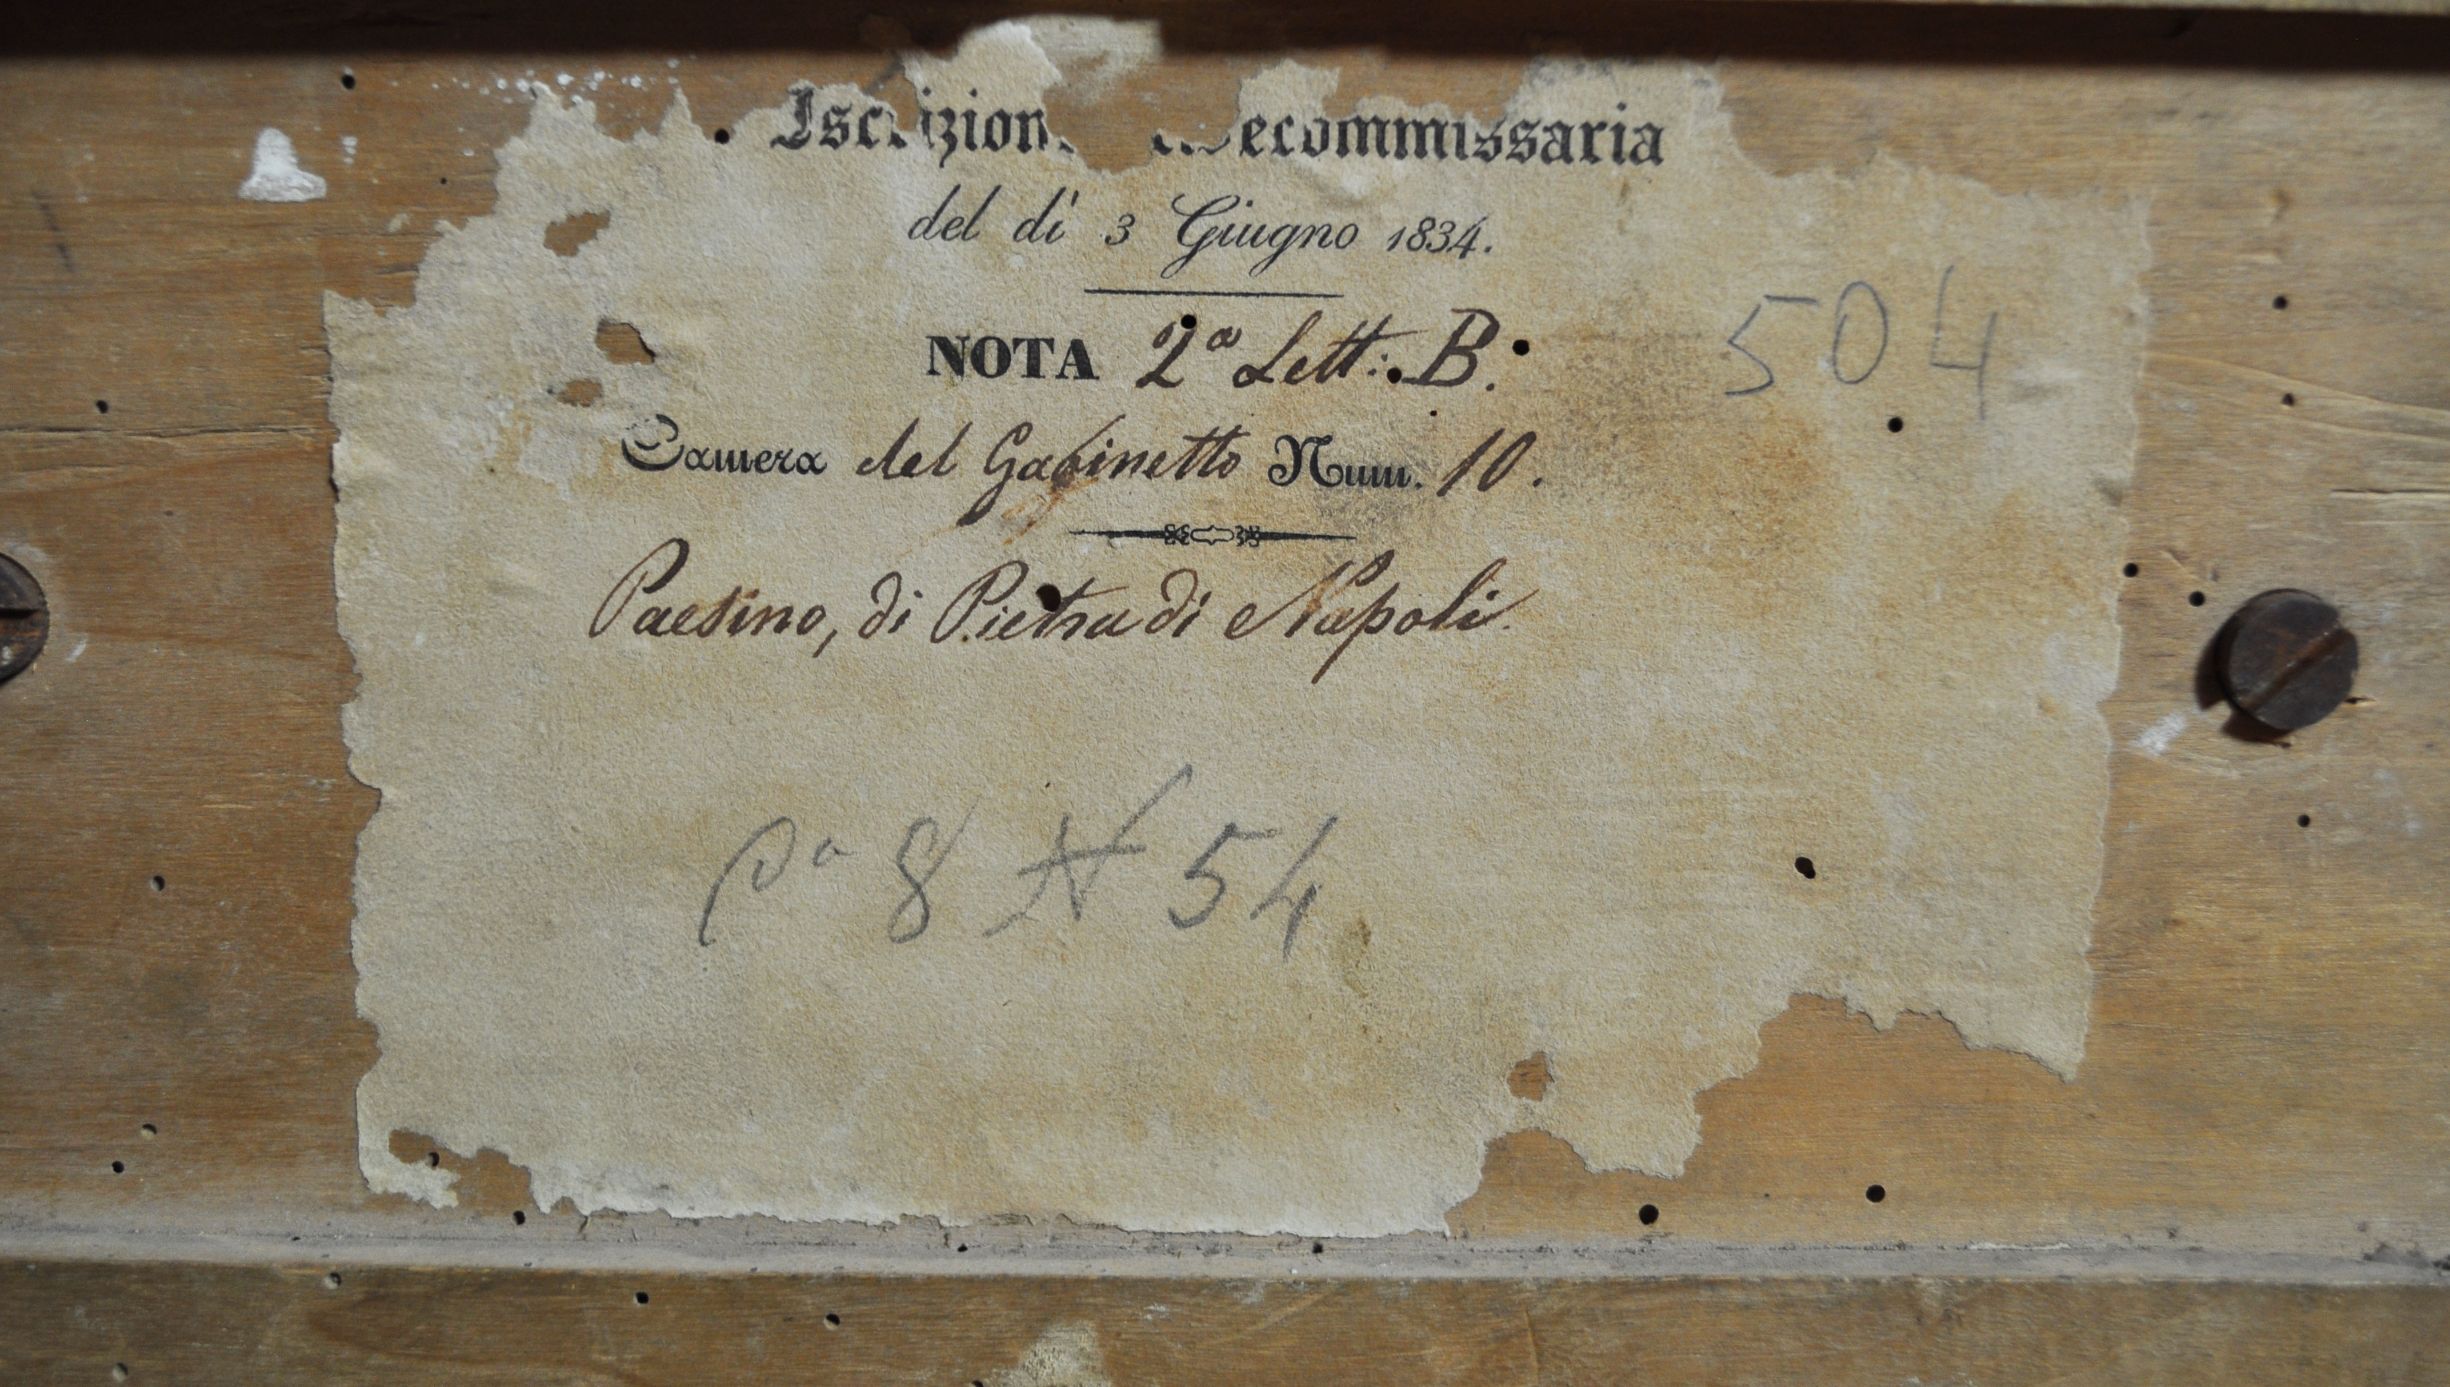 Iscrizione Fidecommissaria
del dì 3 Giugno 1834.
NOTA 2ª Lett: B.
504
Camera del Gabinetto Num. 10.
Paesino, di Pietra di Napoli.
Pª 8 N 54